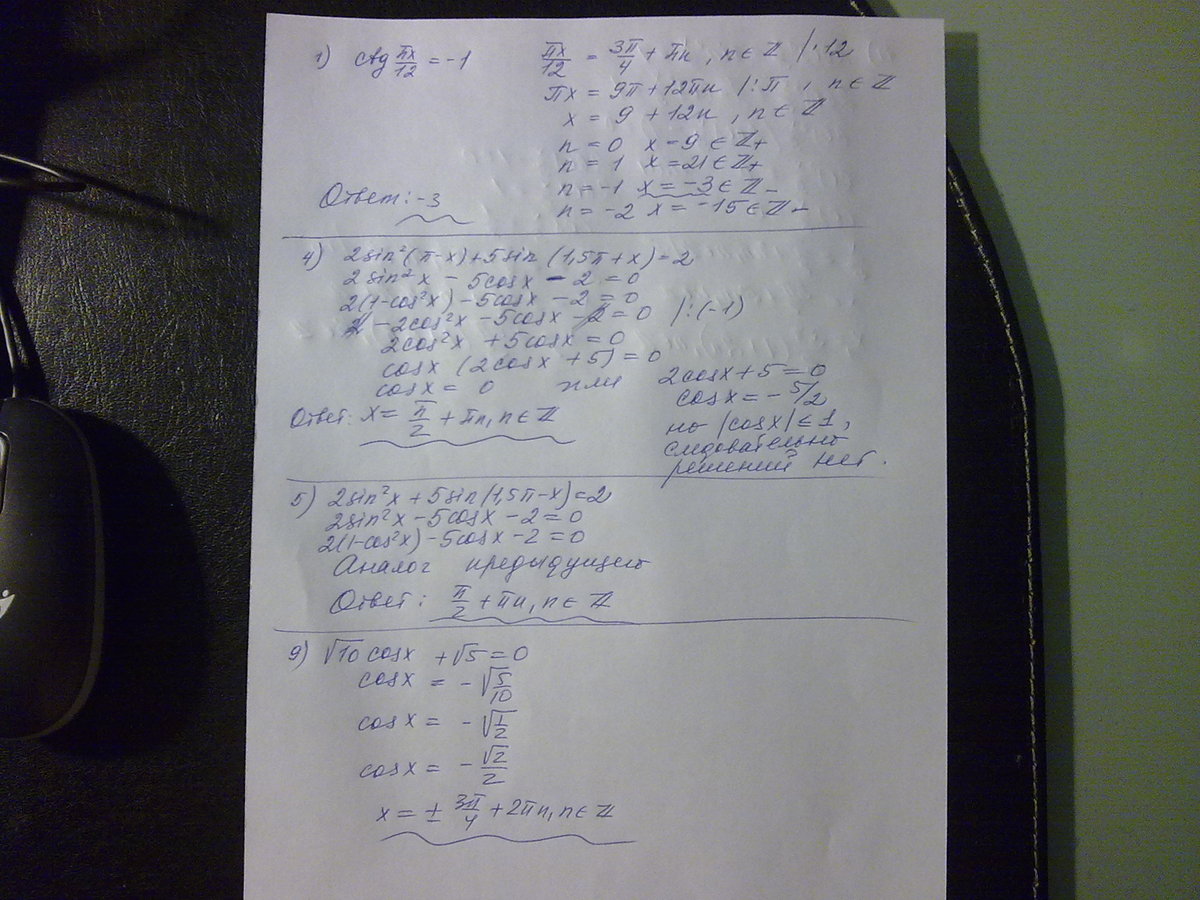 1) ctg πx/12 = -1
πx/12 = 3π/4 + πn, n ∈ ℤ |·12
πx = 9π + 12πn |:π, n ∈ ℤ
x = 9 + 12n, n ∈ ℤ
n = 0 x = 9 ∈ ℤ+
n = 1 x = 21 ∈ ℤ+
n = -1 x = -3 ∈ ℤ-
n = -2 x = -15 ∈ ℤ-
Ответ: -3
4) 2sin²(π-x)+5sin (1,5π+x)=2
2sin²x - 5cosx - 2 = 0
2(1-cos²x) - 5cosx - 2 = 0
2 - 2cos²x - 5cosx - 2 = 0 |:(-1)
2cos²x + 5cosx = 0
cosx (2cosx + 5) = 0
cosx = 0 или 2cosx + 5 = 0
cosx = - 5/2
но |cosx| ≤ 1,
следовательно
решений нет.
Ответ: x = π/2 + πn, n ∈ ℤ
5) 2sin²x + 5sin(1,5π-x)=2
2sin²x - 5cosx - 2 = 0
2(1-cos²x) - 5cosx - 2 = 0
Аналог предыдущего
Ответ: π/2 + πn, n ∈ ℤ
9) √10 cosx + √5 = 0
cosx = - √5/10
cosx = - √1/2
cosx = - √2/2
x = ± 3π/4 + 2πn, n ∈ ℤ